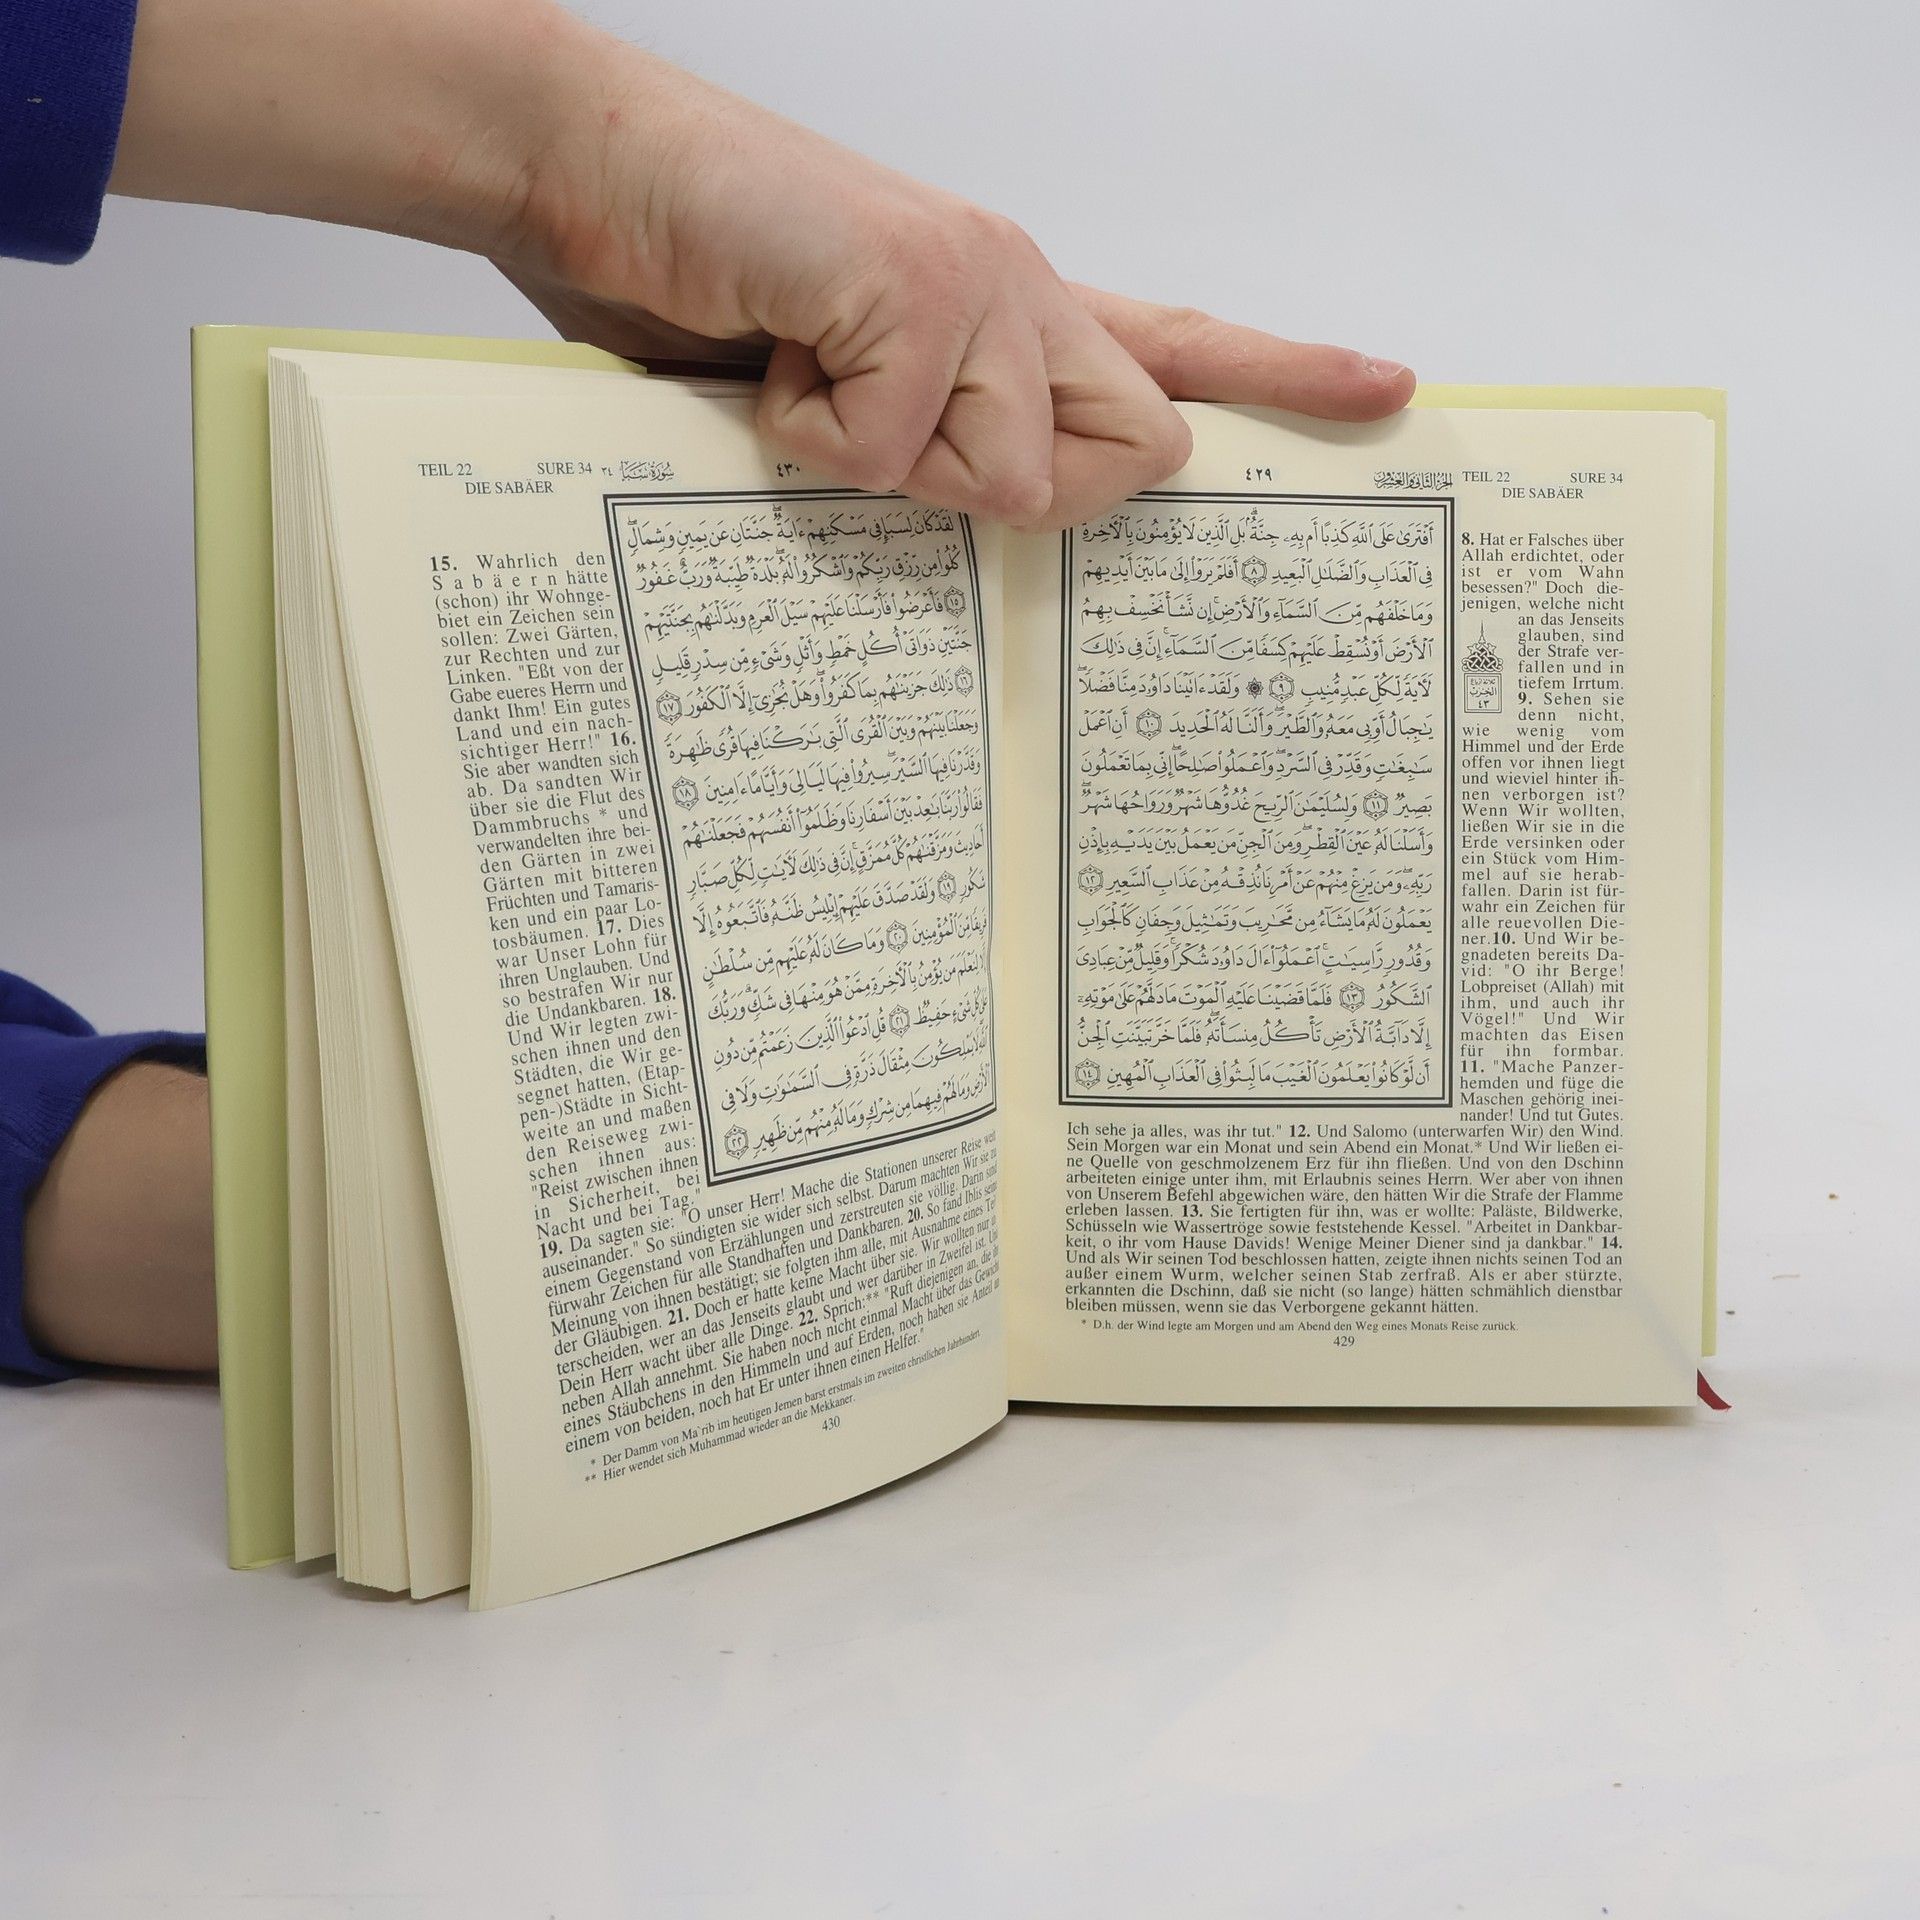 ٤٢٩
الجزء الثاني والعشرون
TEIL 22 SURE 34
DIE SABÄER
أَفْتَرَىٰ عَلَى ٱللَّهِ كَذِبًا أَم بِهِۦ جِنَّةٌۢ بَلِ ٱلَّذِينَ لَا يُؤْمِنُونَ بِٱلْأَخِرَةِ
فِى ٱلْعَذَابِ وَٱلضَّلَٰلِ ٱلْبَعِيدِ ٨ أَفَلَمْ يَرَوْا۟ إِلَىٰ مَا بَيْنَ أَيْدِيهِمْ
وَمَا خَلْفَهُم مِّنَ ٱلسَّمَآءِ وَٱلْأَرْضِ ۚ إِن نَّشَأْ نَخْسِفْ بِهِمُ
ٱلْأَرْضَ أَوْ نُسْقِطْ عَلَيْهِمْ كِسَفًا مِّنَ ٱلسَّمَآءِ ۚ إِنَّ فِى ذَٰلِكَ
لَءَايَةً لِّكُلِّ عَبْدٍ مُّنِيبٍ ٩ ۞ وَلَقَدْ ءَاتَيْنَا دَاوُۥدَ مِنَّا فَضْلًا ۖ
يَٰجِبَالُ أَوِّبِى مَعَهُۥ وَٱلطَّيْرَ ۖ وَأَلَنَّا لَهُ ٱلْحَدِيدَ ١٠ أَنِ ٱعْمَلْ
سَٰبِغَٰتٍ وَقَدِّرْ فِى ٱلسَّرْدِ ۖ وَٱعْمَلُوا۟ صَٰلِحًا ۖ إِنِّى بِمَا تَعْمَلُونَ
بَصِيرٌ ١١ وَلِسُلَيْمَٰنَ ٱلرِّيحَ غُدُوُّهَا شَهْرٌ وَرَوَاحُهَا شَهْرٌ ۖ
وَأَسَلْنَا لَهُۥ عَيْنَ ٱلْقِطْرِ ۖ وَمِنَ ٱلْجِنِّ مَن يَعْمَلُ بَيْنَ يَدَيْهِ بِإِذْنِ
رَبِّهِۦ ۖ وَمَن يَزِغْ مِنْهُمْ عَنْ أَمْرِنَا نُذِقْهُ مِنْ عَذَابِ ٱلسَّعِيرِ ١٢
يَعْمَلُونَ لَهُۥ مَا يَشَآءُ مِن مَّحَٰرِيبَ وَتَمَٰثِيلَ وَجِفَانٍ كَٱلْجَوَابِ
وَقُدُورٍ رَّاسِيَٰتٍ ۚ ٱعْمَلُوٓا۟ ءَالَ دَاوُۥدَ شُكْرًا ۚ وَقَلِيلٌ مِّنْ عِبَادِىَ
ٱلشَّكُورُ ١٣ فَلَمَّا قَضَيْنَا عَلَيْهِ ٱلْمَوْتَ مَا دَلَّهُمْ عَلَىٰ مَوْتِهِۦٓ
إِلَّا دَآبَّةُ ٱلْأَرْضِ تَأْكُلُ مِنسَأَتَهُۥ ۖ فَلَمَّا خَرَّ تَبَيَّنَتِ ٱلْجِنُّ
أَن لَّوْ كَانُوا۟ يَعْلَمُونَ ٱلْغَيْبَ مَا لَبِثُوا۟ فِى ٱلْعَذَابِ ٱلْمُهِينِ ١٤
8. Hat er Falsches über
Allah erdichtet, oder
ist er vom Wahn
besessen?" Doch die-
jenigen, welche nicht
an das Jenseits
glauben, sind
der Strafe ver-
fallen und in
tiefem Irrtum.
9. Sehen sie
denn nicht,
wie wenig vom
Himmel und der Erde
offen vor ihnen liegt
und wieviel hinter ih-
nen verborgen ist?
Wenn Wir wollten,
ließen Wir sie in die
Erde versinken oder
ein Stück vom Him-
mel auf sie herab-
fallen. Darin ist für-
wahr ein Zeichen für
alle reuevollen Die-
ner.10. Und Wir be-
gnadeten bereits Da-
vid: "O ihr Berge!
Lobpreiset (Allah) mit
ihm, und auch ihr
Vögel!" Und Wir
machten das Eisen
für ihn formbar.
11. "Mache Panzer-
hemden und füge die
Maschen gehörig inei-
nander! Und tut Gutes.
Ich sehe ja alles, was ihr tut." 12. Und Salomo (unterwarfen Wir) den Wind.
Sein Morgen war ein Monat und sein Abend ein Monat.* Und Wir ließen ei-
ne Quelle von geschmolzenem Erz für ihn fließen. Und von den Dschinn
arbeiteten einige unter ihm, mit Erlaubnis seines Herrn. Wer aber von ihnen
von Unserem Befehl abgewichen wäre, den hätten Wir die Strafe der Flamme
erleben lassen. 13. Sie fertigten für ihn, was er wollte: Paläste, Bildwerke,
Schüsseln wie Wassertröge sowie feststehende Kessel. "Arbeitet in Dankbar-
keit, o ihr vom Hause Davids! Wenige Meiner Diener sind ja dankbar." 14.
Und als Wir seinen Tod beschlossen hatten, zeigte ihnen nichts seinen Tod an
außer einem Wurm, welcher seinen Stab zerfraß. Als er aber stürzte,
erkannten die Dschinn, daß sie nicht (so lange) hätten schmählich dienstbar
bleiben müssen, wenn sie das Verborgene gekannt hätten.
* D.h. der Wind legte am Morgen und am Abend den Weg eines Monats Reise zurück.
429
TEIL 22 SURE 34 ٣٤ سورة سبإ
DIE SABÄER
٤٣٠
لَقَدْ كَانَ لِسَبَإٍ فِى مَسْكَنِهِمْ ءَايَةٌ ۖ جَنَّتَانِ عَن يَمِينٍ وَشِمَالٍ ۖ
كُلُوا۟ مِن رِّزْقِ رَبِّكُمْ وَٱشْكُرُوا۟ لَهُۥ ۚ بَلْدَةٌ طَيِّبَةٌ وَرَبٌّ غَفُورٌ
١٥ فَأَعْرَضُوا۟ فَأَرْسَلْنَا عَلَيْهِمْ سَيْلَ ٱلْعَرِمِ وَبَدَّلْنَٰهُم بِجَنَّتَيْهِمْ
جَنَّتَيْنِ ذَوَاتَىْ أُكُلٍ خَمْطٍ وَأَثْلٍ وَشَىْءٍ مِّن سِدْرٍ قَلِيلٍ
١٦ ذَٰلِكَ جَزَيْنَٰهُم بِمَا كَفَرُوا۟ ۖ وَهَلْ نُجَٰزِىٓ إِلَّا ٱلْكَفُورَ ١٧
وَجَعَلْنَا بَيْنَهُمْ وَبَيْنَ ٱلْقُرَى ٱلَّتِى بَٰرَكْنَا فِيهَا قُرًى ظَٰهِرَةً
وَقَدَّرْنَا فِيهَا ٱلسَّيْرَ ۖ سِيرُوا۟ فِيهَا لَيَالِىَ وَأَيَّامًا ءَامِنِينَ ١٨
فَقَالُوا۟ رَبَّنَا بَٰعِدْ بَيْنَ أَسْفَارِنَا وَظَلَمُوٓا۟ أَنفُسَهُمْ فَجَعَلْنَٰهُمْ
أَحَادِيثَ وَمَزَّقْنَٰهُمْ كُلَّ مُمَزَّقٍ ۚ إِنَّ فِى ذَٰلِكَ لَءَايَٰتٍ لِّكُلِّ صَبَّارٍ
شَكُورٍ ١٩ وَلَقَدْ صَدَّقَ عَلَيْهِمْ إِبْلِيسُ ظَنَّهُۥ فَٱتَّبَعُوهُ إِلَّا
فَرِيقًا مِّنَ ٱلْمُؤْمِنِينَ ٢٠ وَمَا كَانَ لَهُۥ عَلَيْهِم مِّن سُلْطَٰنٍ
إِلَّا لِنَعْلَمَ مَن يُؤْمِنُ بِٱلْأَخِرَةِ مِمَّنْ هُوَ مِنْهَا فِى شَكٍّ ۗ وَرَبُّكَ
عَلَىٰ كُلِّ شَىْءٍ حَفِيظٌ ٢١ قُلِ ٱدْعُوا۟ ٱلَّذِينَ زَعَمْتُم مِّن دُونِ
ٱللَّهِ ۖ لَا يَمْلِكُونَ مِثْقَالَ ذَرَّةٍ فِى ٱلسَّمَٰوَٰتِ وَلَا فِى
ٱلْأَرْضِ وَمَا لَهُمْ فِيهِمَا مِن شِرْكٍ وَمَا لَهُۥ مِنْهُم مِّن ظَهِيرٍ ٢٢
15. Wahrlich den
Sabäern hätte
(schon) ihr Wohnge-
biet ein Zeichen sein
sollen: Zwei Gärten,
zur Rechten und zur
Linken. "Eßt von der
Gabe eueres Herrn und
dankt Ihm! Ein gutes
Land und ein nach-
sichtiger Herr!" 16.
Sie aber wandten sich
ab. Da sandten Wir
über sie die Flut des
Dammbruchs * und
verwandelten ihre bei-
den Gärten in zwei
Gärten mit bitteren
Früchten und Tamaris-
ken und ein paar Lo-
tosbäumen. 17. Dies
war Unser Lohn für
ihren Unglauben. Und
so bestrafen Wir nur
die Undankbaren. 18.
Und Wir legten zwi-
schen ihnen und den
Städten, die Wir ge-
segnet hatten, (Etap-
pen-)Städte in Sicht-
weite an und maßen
den Reiseweg zwi-
schen ihnen aus:
"Reist zwischen ihnen
in Sicherheit, bei
Nacht und bei Tag."
19. Da sagten sie: "O unser Herr! Mache die Stationen unserer Reise weit
auseinander." So sündigten sie wider sich selbst. Darum machten Wir sie zu
einem Gegenstand von Erzählungen und zerstreuten sie völlig. Darin sind
fürwahr Zeichen für alle Standhaften und Dankbaren. 20. So fand Iblis seine
Meinung von ihnen bestätigt; sie folgten ihm alle, mit Ausnahme eines Teils
der Gläubigen. 21. Doch er hatte keine Macht über sie. Wir wollten nur
terscheiden, wer an das Jenseits glaubt und wer darüber in Zweifel ist.
Dein Herr wacht über alle Dinge. 22. Sprich:** "Ruft diejenigen an, die
neben Allah annehmt. Sie haben noch nicht einmal Macht über das Gewicht
eines Stäubchens in den Himmeln und auf Erden, noch haben sie Anteil
einem von beiden, noch hat Er unter ihnen einen Helfer."
* Der Damm von Ma'rib im heutigen Jemen barst erstmals im zweiten christlichen Jahrhundert.
** Hier wendet sich Muhammad wieder an die Mekkaner.
430